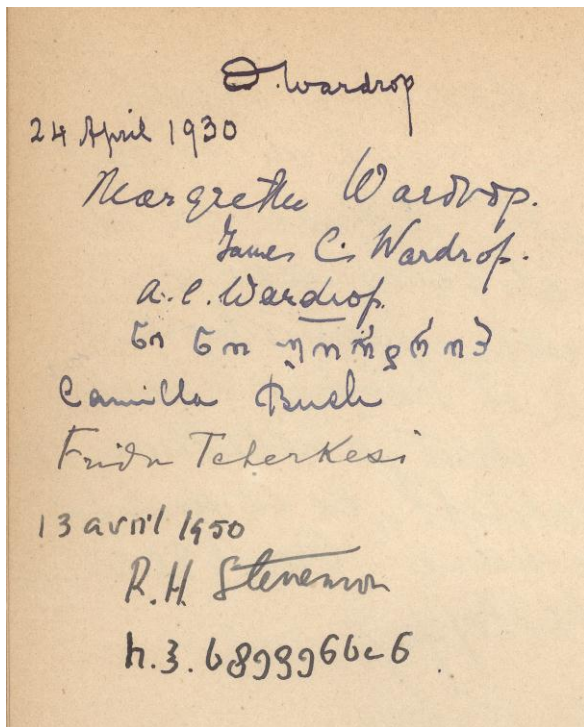 O. Wardrop
24 April 1930
Margrethe Wardrop.
James C. Wardrop.
A. C. Wardrop.
Camilla Bush
Frida Tcherkesi
13 avril 1950
R.H. Stevenson
რ.ჰ. სტევენსონ.